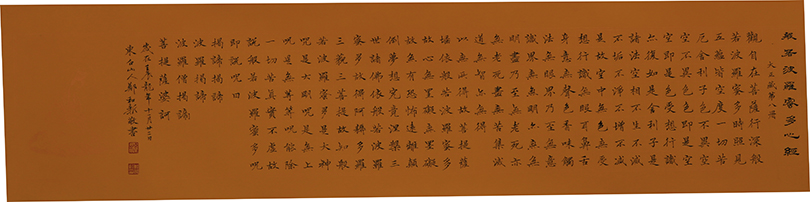 般若波羅蜜多心經
大正藏第八冊
觀自在菩薩行深般
若波羅蜜多時照見
五蘊皆空度一切苦
厄舍利子色不異空
空不異色色即是空
空即是色受想行識
亦復如是舍利子是
諸法空相不生不滅
不垢不淨不增不減
是故空中無色無受
想行識無眼耳鼻舌
身意無色聲香味觸
法無眼界乃至無意
識界無無明亦無無
明盡乃至無老死亦
無老死盡無苦集滅
道無智亦無得
以無所得故菩提薩
埵依般若波羅蜜多
故心無罣礙無罣礙
故無有恐怖遠離顛
倒夢想究竟涅槃三
世諸佛依般若波羅
蜜多故得阿耨多羅
三藐三菩提故知般
若波羅蜜多是大神
呪是大明呪是無上
呪是無等等呪能除
一切苦真實不虛故
說般若波羅蜜多呪
即說呪曰
揭諦揭諦
波羅揭諦
波羅僧揭諦
菩提薩婆訶
龍年十一月廿二日
東台山人鄭和敬書